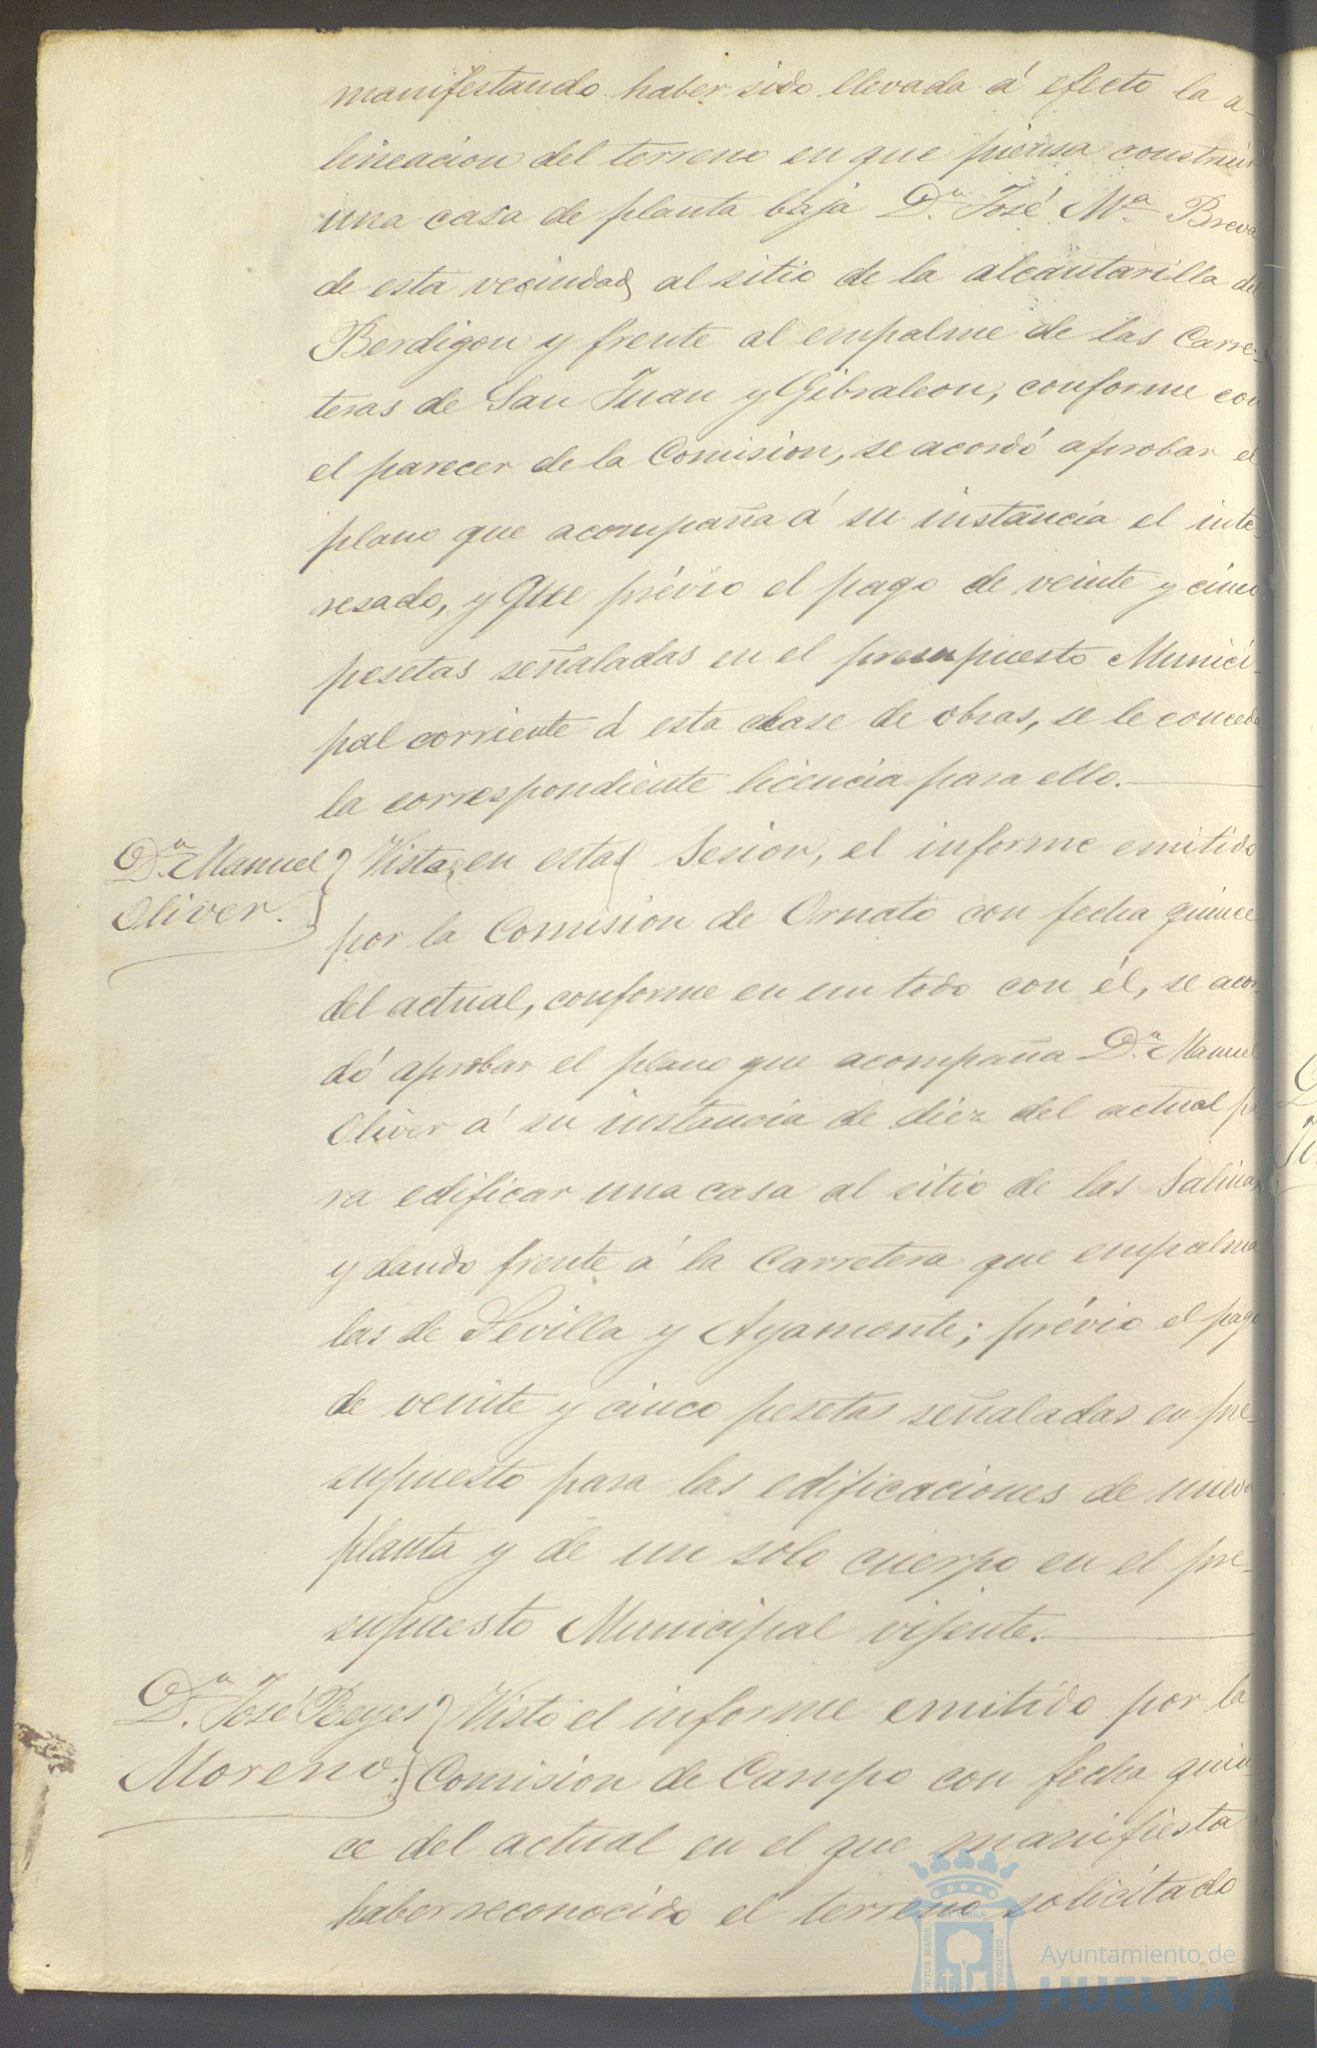 manifestando haber sido llevada á efecto la a-
lineacion del terreno en que piensa construir
una casa de planta baja D.n José M.a Breva
de esta vecindad al sitio de la alcantarilla del
Berdigon y frente al empalme de las Carre-
teras de San Juan y Gibraleon, conforme con
el parecer de la Comision, se acordó aprobar el
plano que acompaña á su instancia el inte-
resado, y que prévio el pago de veinte y cinco
pesetas señaladas en el presupuesto Munici-
pal corriente á esta clase de obras, se le conceda
la correspondiente licencia para ello.
D.n Manuel
Oliver.
Vista en esta Sesion, el informe emitido
por la Comision de Ornato con fecha quince
del actual, conforme en un todo con él, se acor-
dó aprobar el plano que acompaña D.n Manuel
Oliver á su instancia de diez del actual pa
ra edificar una casa al sitio de las Salinas
y dando frente á la Carretera que empalma
las de Sevilla y Ayamonte; prévio el pago
de veinte y cinco pesetas señaladas en pre-
supuesto para las edificaciones de nueva
planta y de un solo cuerpo en el pre-
supuesto Municipal vijente.
D.n José Reyes
Moreno.
Visto el informe emitido por la
Comision de Campo con fecha quin-
ce del actual en el que manifiesta
haber reconocido el terreno solicitado
PORTUS MARIS
ET TERRAE
CUSTODIA
Ayuntamiento de
HUELVA